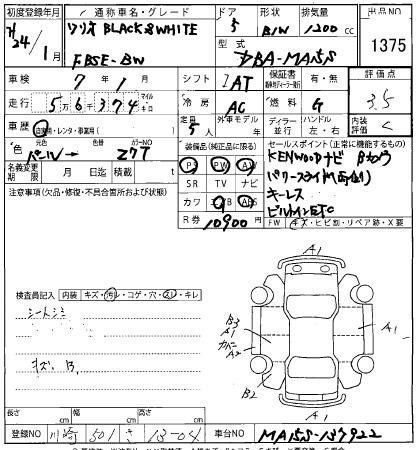 初度登録年月 通称車名・グレード ドア 形状 排気量 出品NO
H24/1月 ソリオ BLACK&WHITE 5 B/W 1200 cc 1375
FBSE-BW 型式 DBA-MA15S
車検 7年1月 シフト IAT 保証書 有・無 評価点
走行 56374 マイル キロ 冷房 AC 燃料 G 3.5
車歴 自家用・レンタ・事業用( ) 定員 5人 外車モデル 年 ディーラー 並行 ハンドル 左・右 内装評価 C
色 元色 パール 色替 カラーNO Z7T 装備品(純正品に限る) セールスポイント(正常に機能するもの)
名義変更期限 月 日迄 積載 t PS PW AW KENWOODナビ Bカメラ
注意事項(欠品・修復・不具合箇所および状態) SR TV ナビ パワースライド(両側)
カワ エアB ABS キーレス
R券 10900 円 ビルトインETC
FW キズ・ヒビ割・リペア跡・X要
検査員記入 内装 キズ・汚レ・コゲ・穴・スレ・キレ
シートシミ
キズ、B
A1
B3
A1
カバー
A2
A1
B2
A1
長さ cm 幅 cm 高さ cm
登録NO 川崎 501 さ 13-04 車台NO MA15S-137922